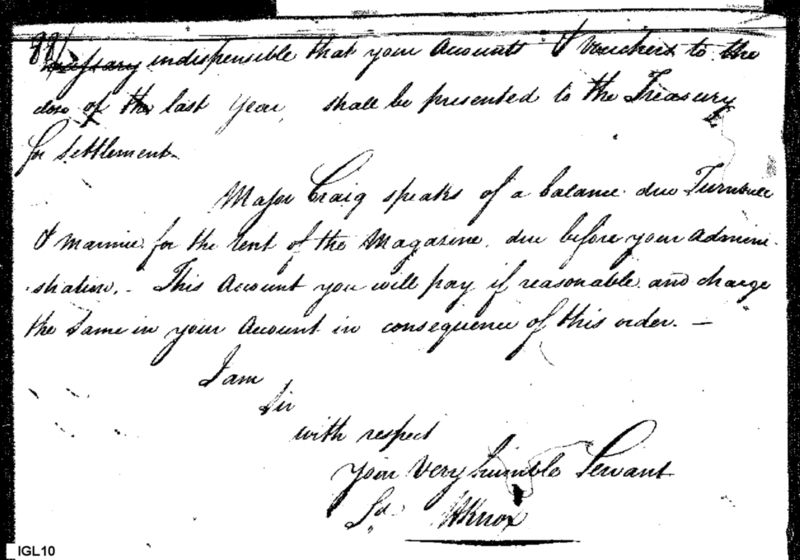 221
necessary indispensible that your Accounts & Vouchers to the
close of the last year, shall be presented to the Treasury
for settlement.
Major Craig speaks of a balance due Turnbull
& Marmie for the rent of the Magazine, due before your admini-
-stration. - This Account you will pay if reasonable and charge
the same in your Account in consequence of this order. —
I am
Sir
with respect
your Very humble Servant
Sd. HKnox
IGL10